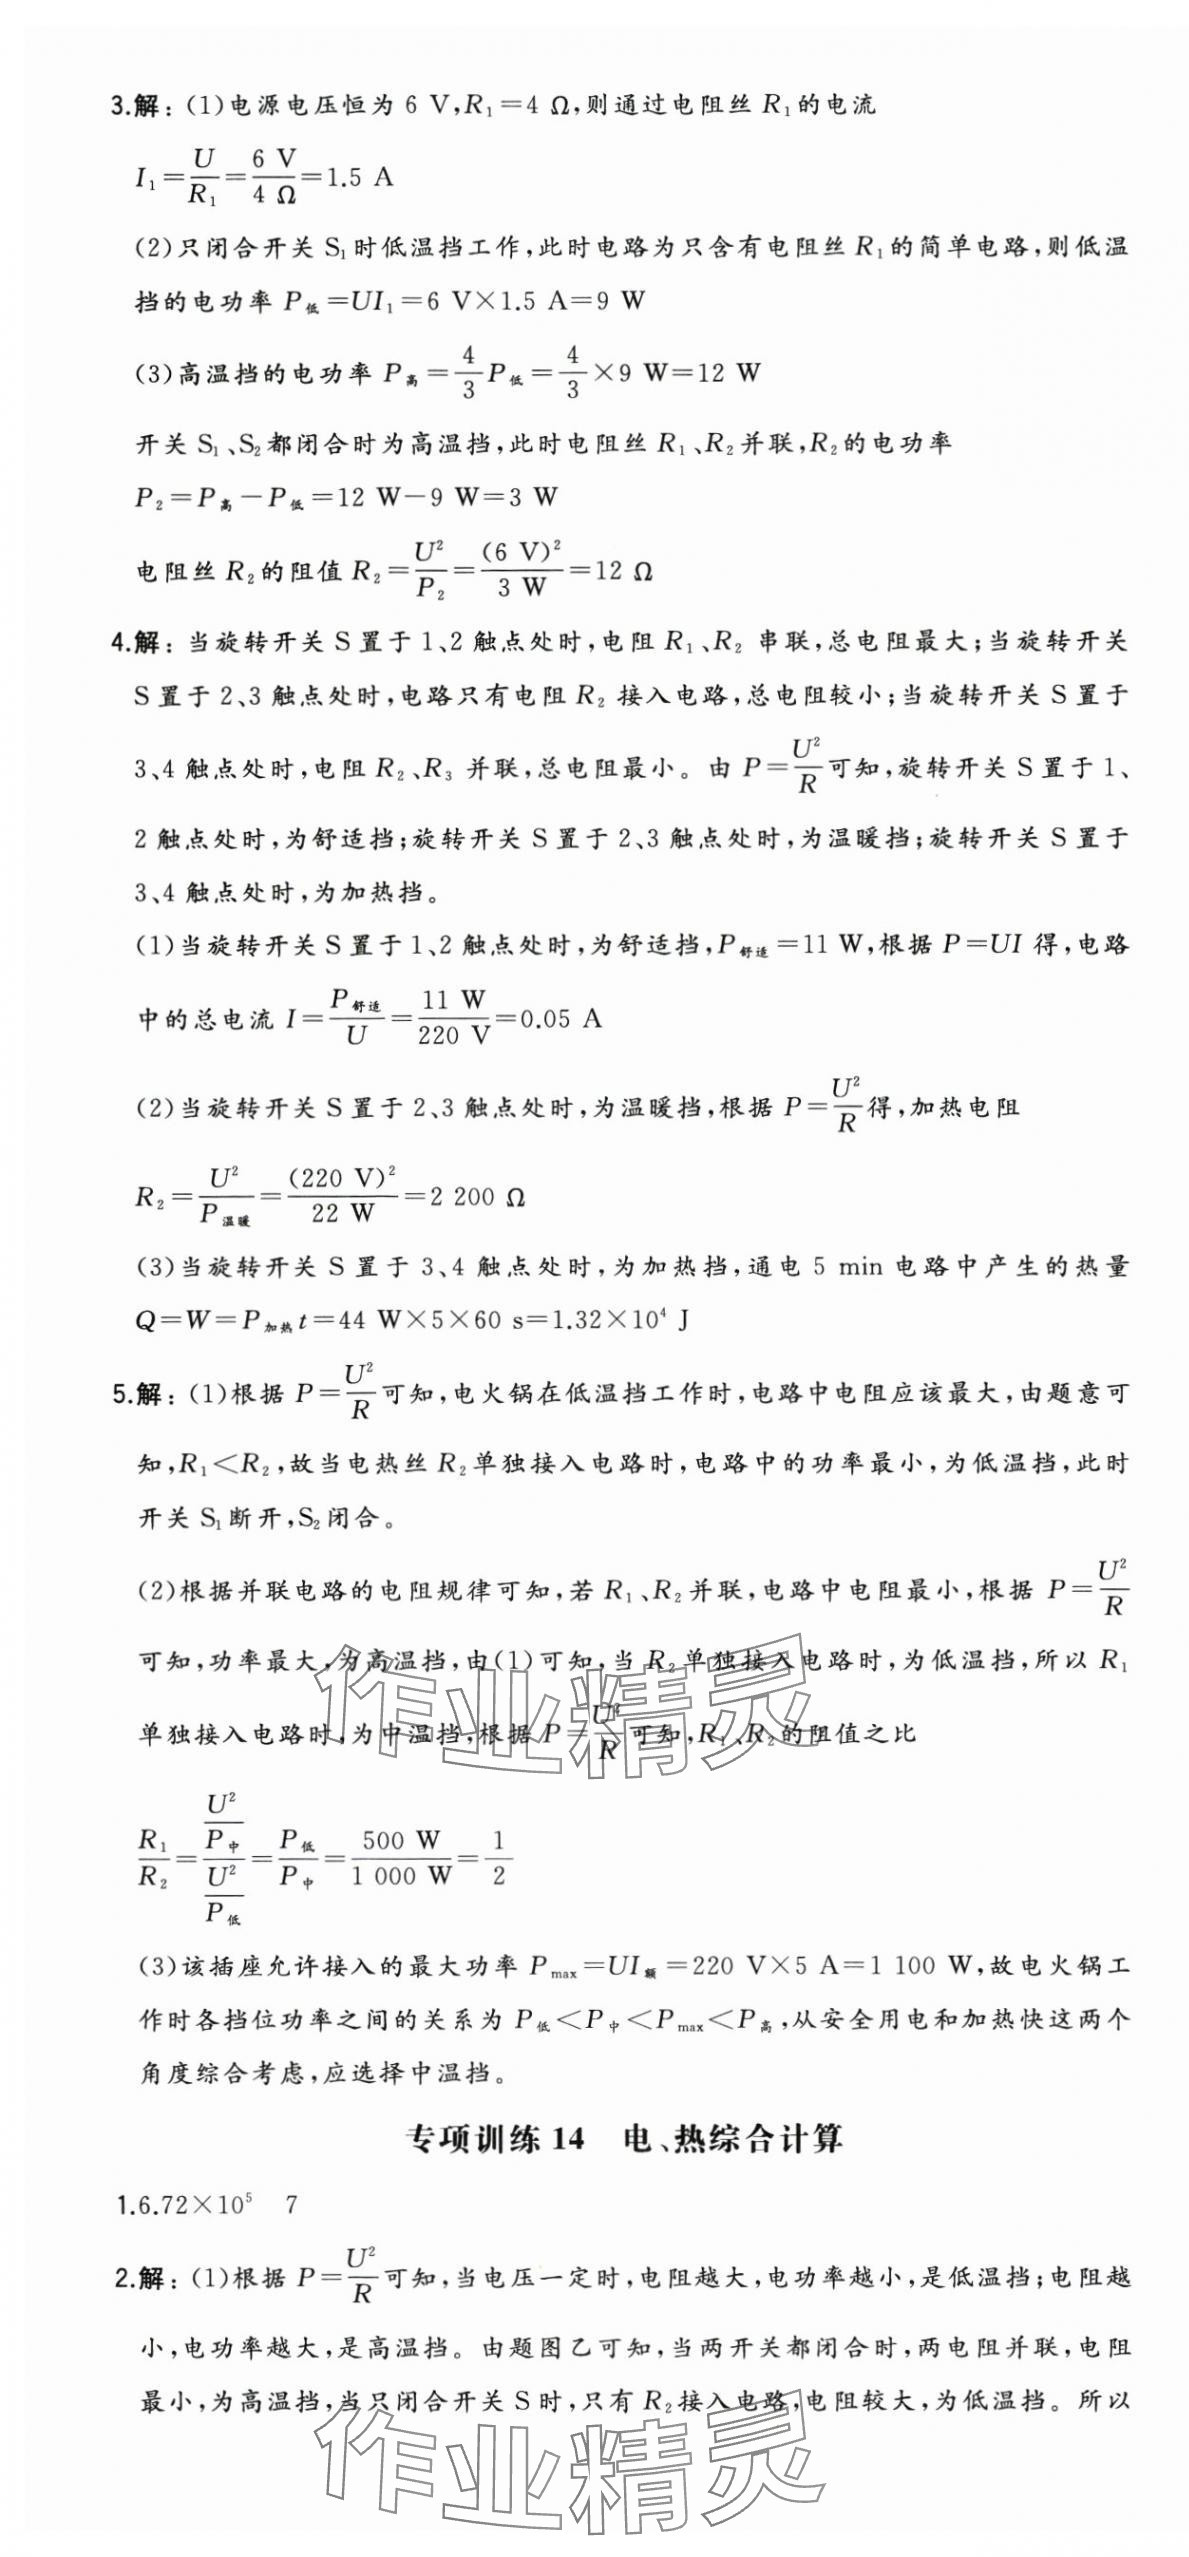 3.解：(1)电源电压恒为 6 V,R₁=4 Ω,则通过电阻丝 R₁的电流
I₁=U/R₁=6 V/4 Ω=1.5 A
(2)只闭合开关 S₁时低温挡工作,此时电路为只含有电阻丝 R₁的简单电路,则低温
挡的电功率 P低=UI₁=6 V×1.5 A=9 W
(3)高温挡的电功率 P高=4/3P低=4/3×9 W=12 W
开关 S₁、S₂都闭合时为高温挡,此时电阻丝 R₁、R₂并联,R₂的电功率
P₂=P高-P低=12 W-9 W=3 W
电阻丝 R₂的阻值 R₂=U²/P₂=(6 V)²/3 W=12 Ω
4.解：当旋转开关 S 置于 1、2 触点处时,电阻 R₁、R₂ 串联,总电阻最大;当旋转开关
S 置于 2、3 触点处时,电路只有电阻 R₂ 接入电路,总电阻较小;当旋转开关 S 置于
3、4 触点处时,电阻 R₂、R₃ 并联,总电阻最小。由 P=U²/R可知,旋转开关 S 置于 1、
2 触点处时,为舒适挡;旋转开关 S 置于 2、3 触点处时,为温暖挡;旋转开关 S 置于
3、4 触点处时,为加热挡。
(1)当旋转开关 S 置于 1、2 触点处时,为舒适挡,P舒适=11 W,根据 P=UI 得,电路
中的总电流 I=P舒适/U=11 W/220 V=0.05 A
(2)当旋转开关 S 置于 2、3 触点处时,为温暖挡,根据 P=U²/R得,加热电阻
R₂=U²/P温暖=(220 V)²/22 W=2 200 Ω
(3)当旋转开关 S 置于 3、4 触点处时,为加热挡,通电 5 min 电路中产生的热量
Q=W=P加热t=44 W×5×60 s=1.32×10⁴ J
5.解：(1)根据 P=U²/R可知,电火锅在低温挡工作时,电路中电阻应该最大,由题意可
知,R₁<R₂,故当电热丝 R₂单独接入电路时,电路中的功率最小,为低温挡,此时
开关 S₁断开,S₂闭合。
(2)根据并联电路的电阻规律可知,若 R₁、R₂并联,电路中电阻最小,根据 P=U²/R
可知,功率最大,为高温挡,由(1)可知,当 R₂单独接入电路时,为低温挡,所以 R₁
单独接入电路时,为中温挡,根据 P=U²/R可知,R₁、R₂的阻值之比
R₁/R₂=(U²/P中)/(U²/P低)=P低/P中=500 W/1 000 W=1/2
(3)该插座允许接入的最大功率 Pmax=UI额=220 V×5 A=1 100 W,故电火锅工
作时各挡位功率之间的关系为 P低<P中<Pmax<P高,从安全用电和加热快这两个
角度综合考虑,应选择中温挡。
专项训练 14 电、热综合计算
1.6.72×10⁵ 7
2.解：(1)根据 P=U²/R可知,当电压一定时,电阻越大,电功率越小,是低温挡;电阻越
小,电功率越大,是高温挡。由题图乙可知,当两开关都闭合时,两电阻并联,电阻
最小,为高温挡,当只闭合开关 S 时,只有 R₂接入电路,电阻较大,为低温挡。所以
作业精灵
作业精灵